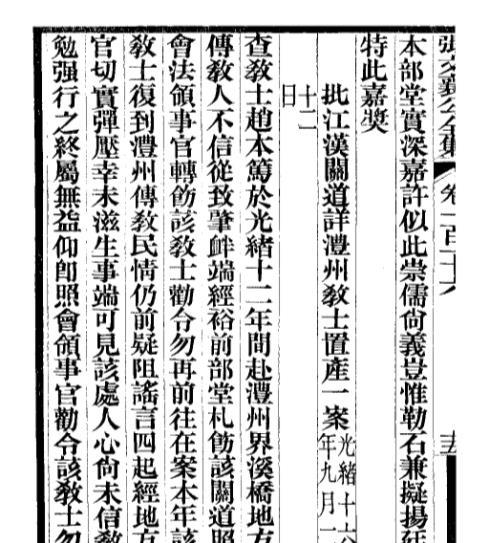 張文襄公全集 卷一百十六
本部堂實深嘉許似此崇儒尙義豈惟勒石兼擬揚廷
特此嘉奬
批江漢關道詳澧州敎士置產一案 光緒十六年九月
十二日
查敎士趙本篤於光緒十二年間赴澧州界溪橋地方
傳敎人不信從致肇衅端經裕前部堂札飭該關道照
會法領事官轉飭該敎士勸令勿再前往在案本年該
敎士復到澧州傳敎民情仍前疑阻謠言四起經地方
官切實彈壓幸未滋生事端可見該處人心尙未信敎
勉强行之終屬無益仰卽照會領事官勸令該敎士勿